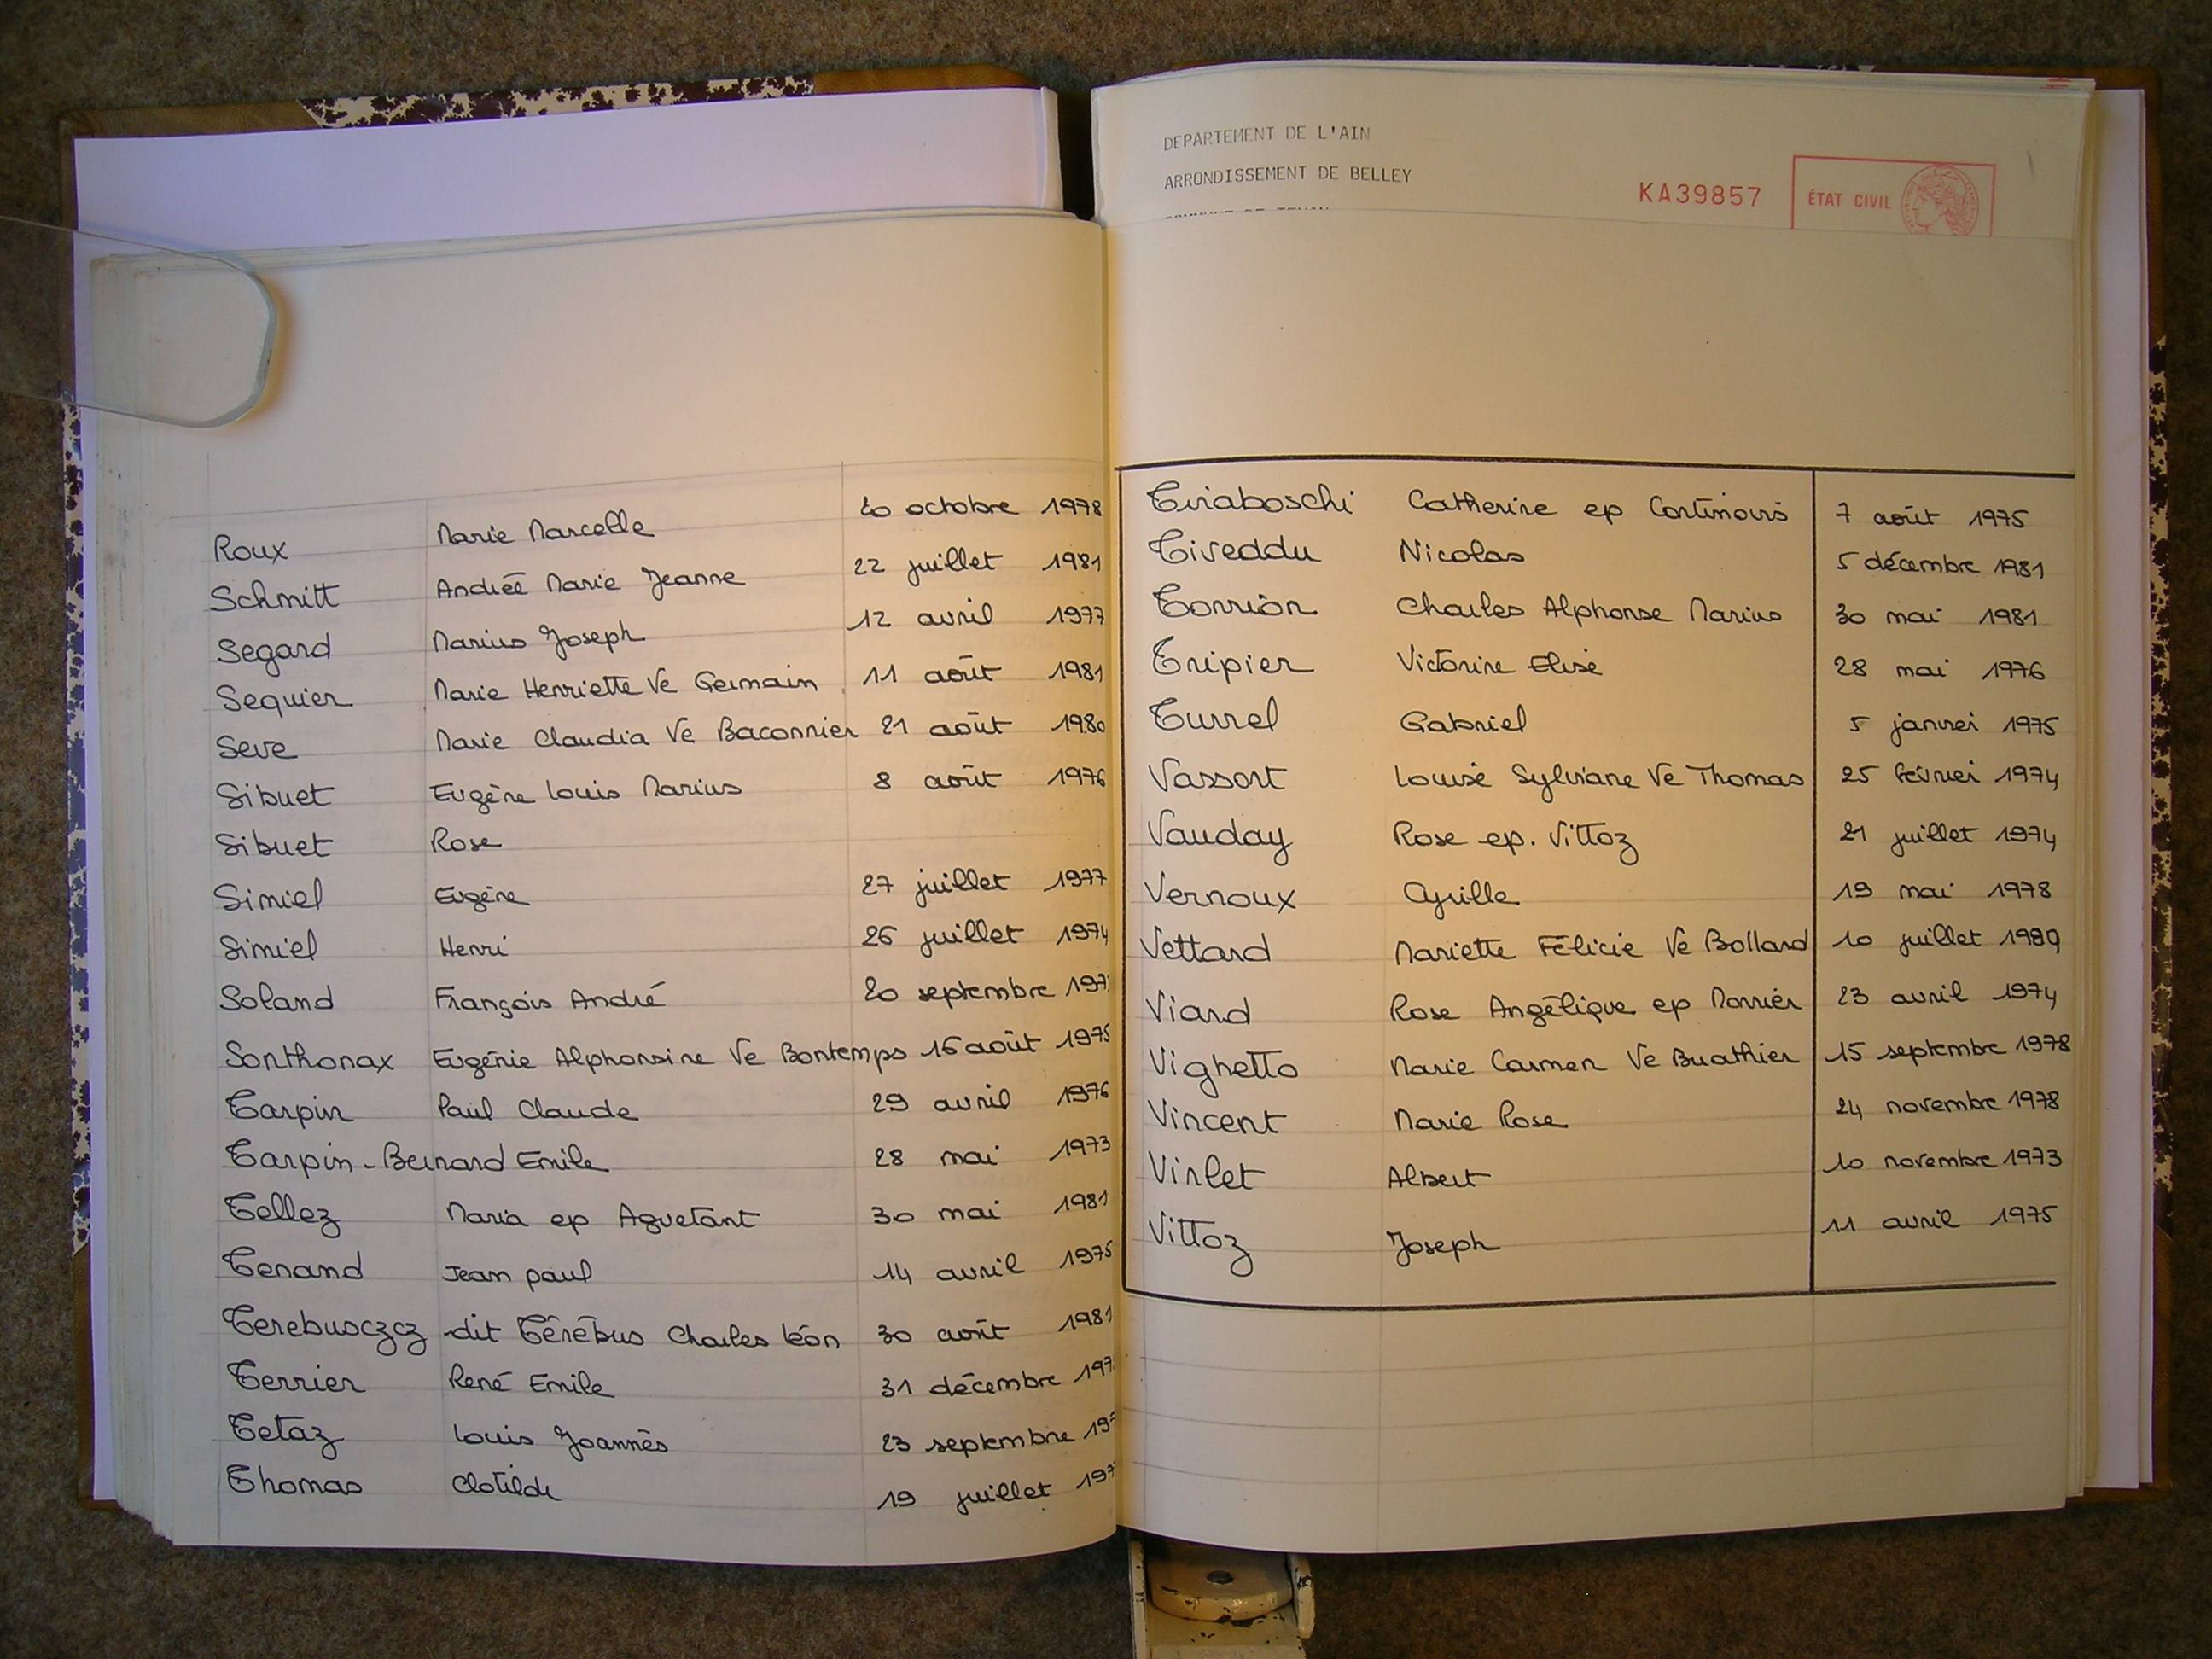 Roux Marie Marcelle 20 octobre 1978
Schmitt Andrée Marie Jeanne 22 juillet 1981
Segard Marius Joseph 12 avril 1977
Sequier Marie Henriette Ve Germain 11 août 1981
Seve Marie Claudia Ve Baconnier 21 août 1980
Sibuet Eugène Louis Marius 8 août 1976
Sibuet Rose
Simiel Eugène 27 juillet 1977
Simiel Henri 26 juillet 1974
Soland François André 20 septembre
Sonthonax Eugénie Alphonsine Ve Bontemps 16 août 1975
Tarpin Paul Claude 29 avril 1976
Tarpin-Bernard Emile 28 mai 1973
Tellez Maria ep Aguetant 30 mai 1981
Tenand Jean paul 14 avril 1975
Terebusczcz dit Térébus Charles Léon 30 août 1981
Terrier René Emile 31 décembre
Tetaz Louis Joannès 23 septembre
Thomas Clotilde 19 juillet
DEPARTEMENT DE L'AIN
ARRONDISSEMENT DE BELLEY
KA39857 ÉTAT CIVIL
Tiraboschi Catherine ep 7 août 1975
Tiveddu Nicolas 5 décembre 1981
Torrion Charles Alphonse Marius 30 mai 1981
Tripier Victorine Elise 28 mai 1976
Turrel Gabriel 5 janvier 1975
Vassort Louise Sylviane Ve Thomas 25 février 1974
Vauday Rose ep. Vittoz 21 juillet 1974
Vernoux Cyrille 19 mai 1978
Vettard Mariette Félicie Ve Bollard 10 juillet
Viard Rose Angélique ep Morrier 23 avril 1974
Vighetto Marie Carmen Ve Buathier 15 septembre 1978
Vincent Marie Rose 24 novembre 1978
Virlet Albert 10 novembre 1973
Vittoz Joseph 11 avril 1975